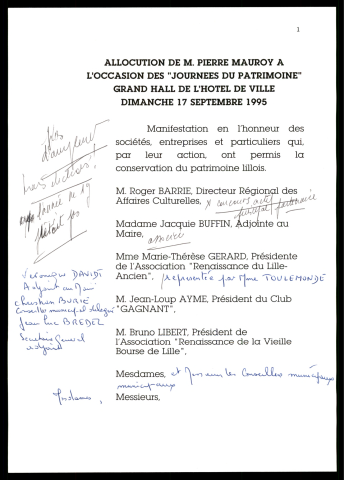 1
ALLOCUTION DE M. PIERRE MAUROY A
L'OCCASION DES "JOURNEES DU PATRIMOINE"
GRAND HALL DE L'HOTEL DE VILLE
DIMANCHE 17 SEPTEMBRE 1995
Manifestation en l'honneur des
sociétés, entreprises et particuliers qui,
par leur action, ont permis la
conservation du patrimoine lillois.
M. Roger BARRIE, Directeur Régional des
Affaires Culturelles,
Madame Jacquie BUFFIN, Adjointe au
Maire,
Mme Marie-Thérèse GERARD, Présidente
de l'Association "Renaissance du Lille-
Ancien", représentée par Mme TOULEMONDE
M. Jean-Loup AYME, Président du Club
"GAGNANT",
M. Bruno LIBERT, Président de
l'Association "Renaissance de la Vieille
Bourse de Lille",
Mesdames, et Messieurs les Conseillers municipaux
municipaux
Mesdames, Messieurs,
Véronique DAVIDT
Adjoint au Maire
Christian BURIE
Conseiller municipal délégué
Jean Luc BREDEL
Secrétaire Général
adjoint